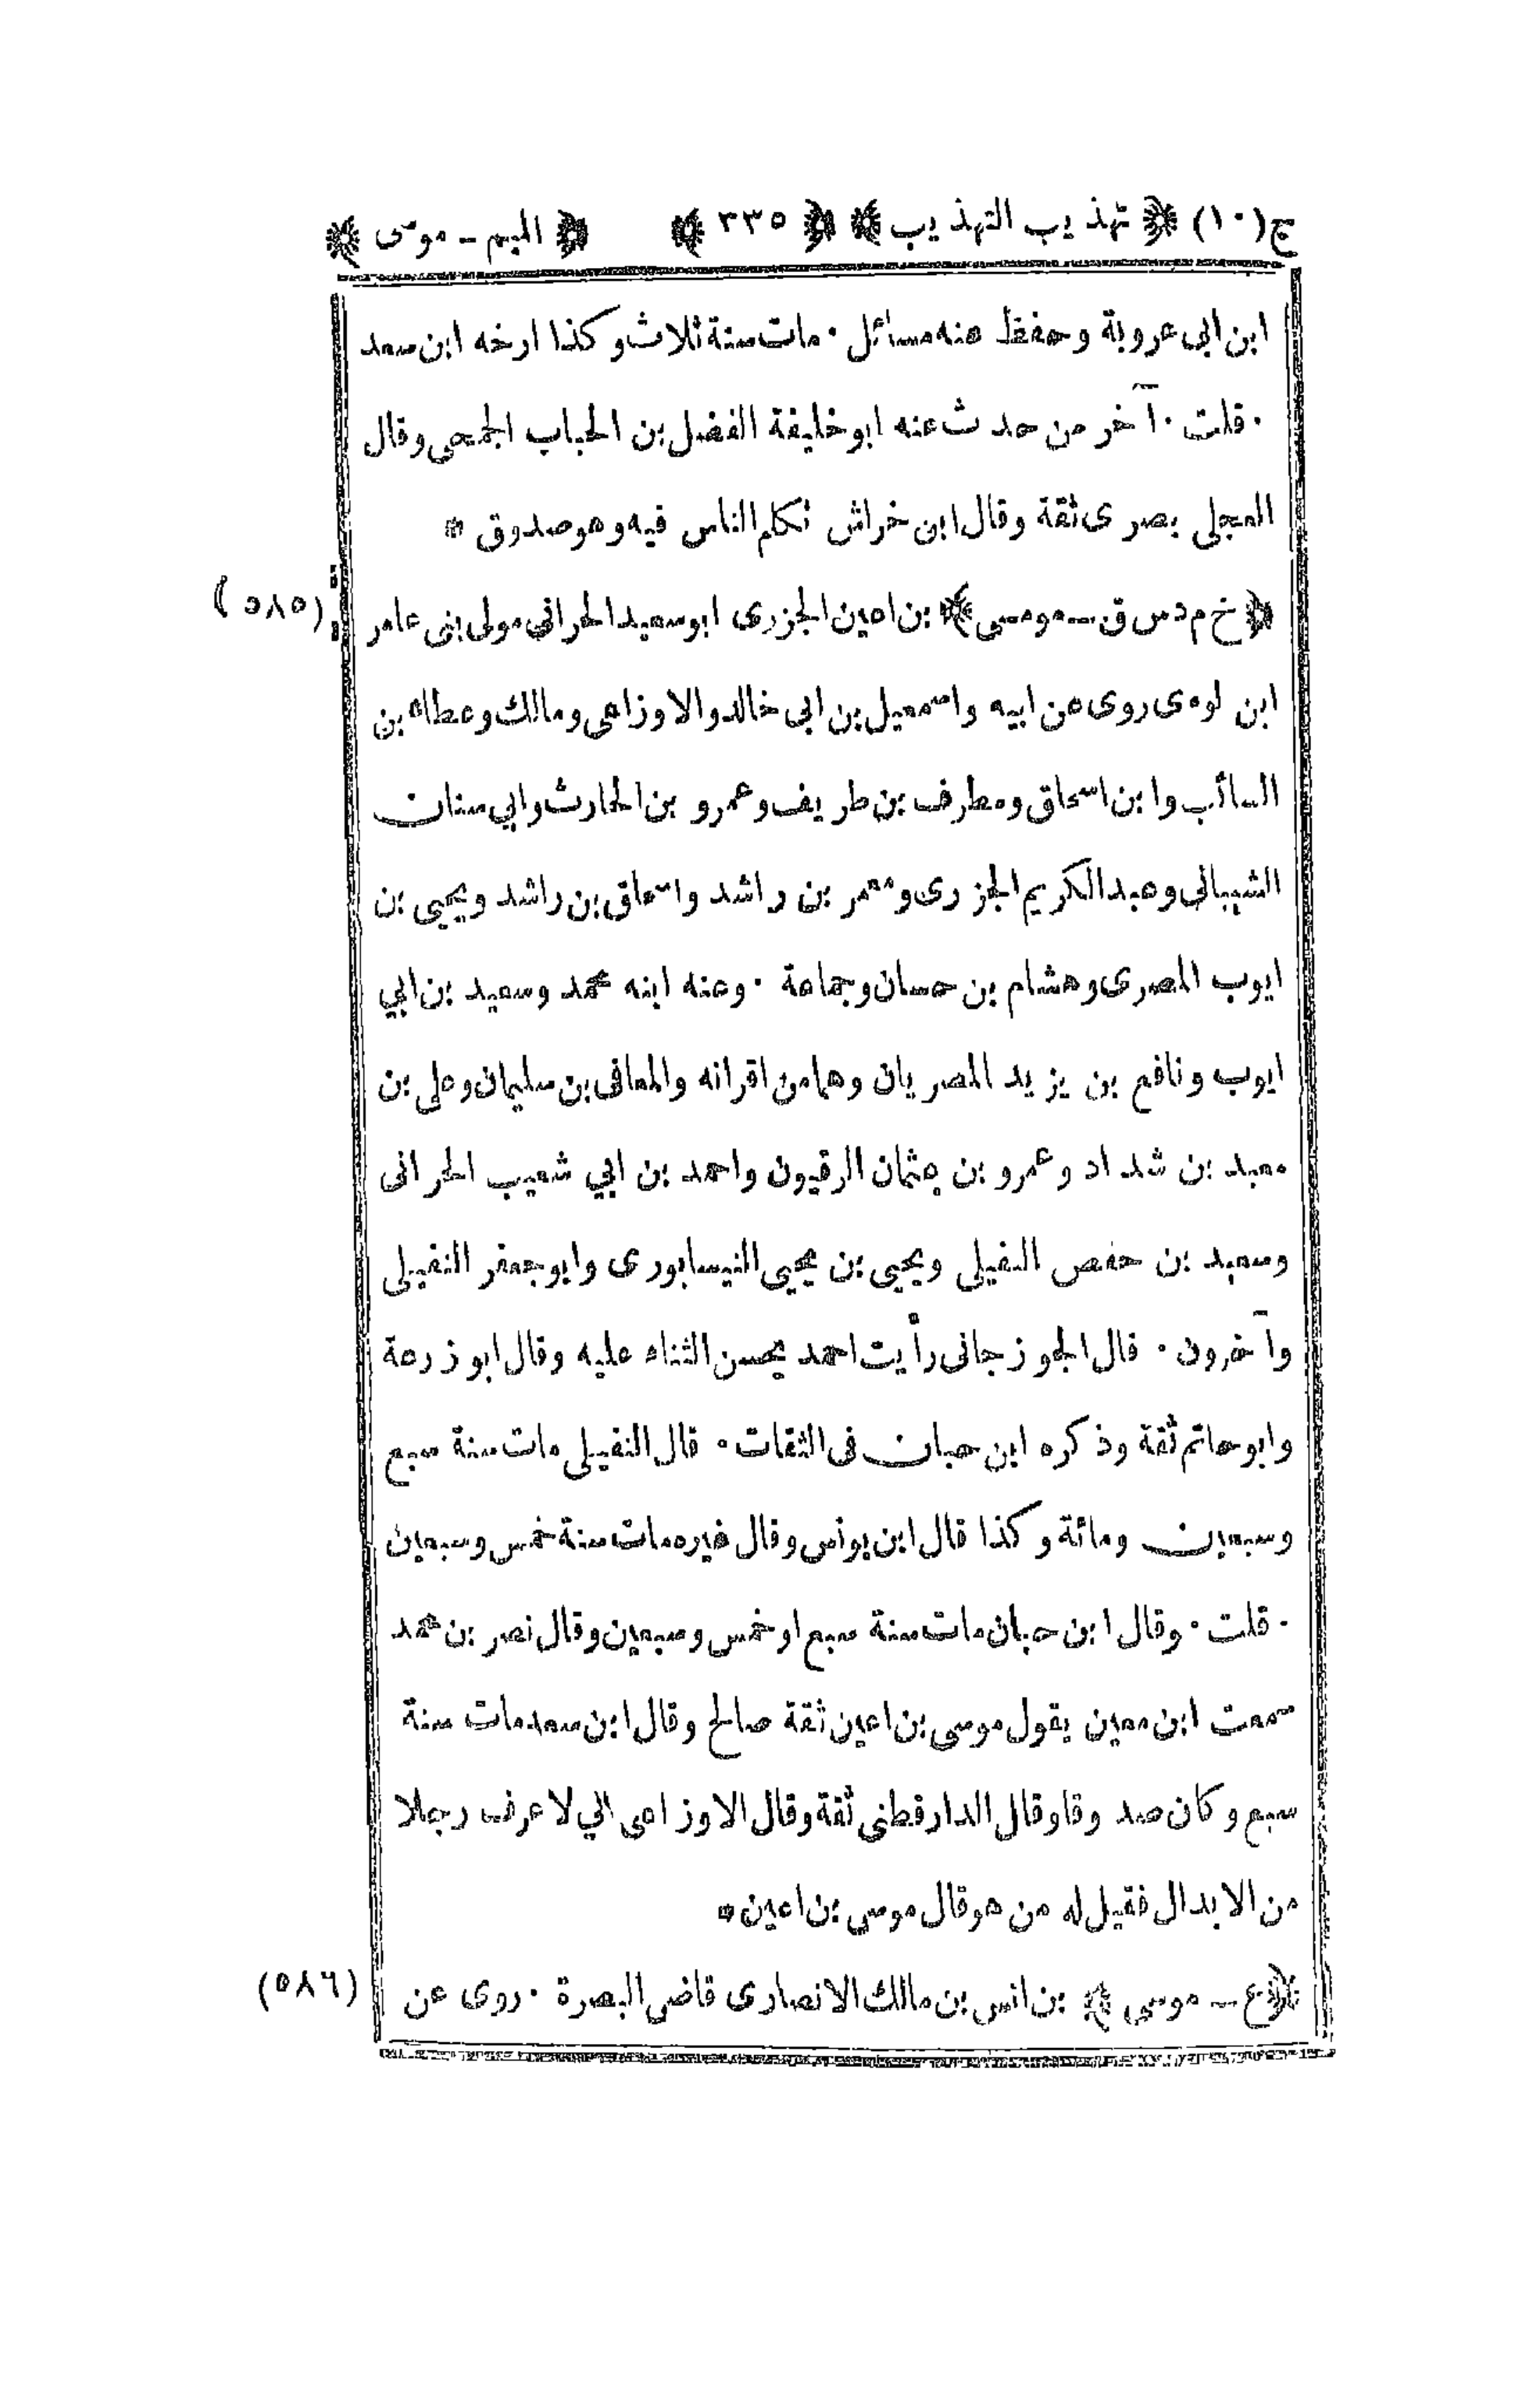 ج(١٠) ﴿ تهذيب التهذيب ﴾ ﴿ ٣٣٥ ﴾ ﴿ الميم - موسى ﴾
ابن ابى عروبة وحفظ عنه مسائل · مات سنة ثلاث وكذا ارخه ابن سعد
· قلت · آخر من حدث عنه ابو خليفة الفضل بن الحباب الجمحى وقال
العجلى بصرى ثقة وقال ابن خراش تكلم الناس فيه وهو صدوق *
﴿ خ م د س ق - موسى ﴾ بن اعين الجزرى ابو سعيد الحرانى مولى بنى عامر (٥٨٥)
ابن لوءى روى عن ابيه واسمعيل بن ابى خالد والاوزاعى ومالك وعطاء بن
السائب وابن اسحاق ومطرف بن طريف وعمرو بن الحارث وابي سنان
الشيبانى وعبد الكريم الجزرى ومعمر بن راشد واسحاق بن راشد ويحيى بن
ايوب المصرى وهشام بن حسان وجماعة · وعنه ابنه محمد وسعيد بن ابي
ايوب ونافع بن يزيد المصريان وهما من اقرانه والمعافى بن سليمان وعلى بن
معبد بن شداد وعمرو بن عثمان الرقيون واحمد بن ابي شعيب الحرانى
وسعيد بن حفص النفيلى ويحيى بن يحيى النيسابورى وابو جعفر النفيلى
وآخرون · قال الجوزجانى رأيت احمد يحسن الثناء عليه وقال ابو زرعة
وابو حاتم ثقة وذكره ابن حبان فى الثقات · قال النفيلى مات سنة سبع
وسبعين ومائة وكذا قال ابن يونس وقال غيره مات سنة خمس وسبعين
· قلت · وقال ابن حبان مات سنة سبع او خمس وسبعين وقال نصر بن محمد
سمعت ابن معين يقول موسى بن اعين ثقة صالح وقال ابن سعد مات سنة
سبع وكان صدوقا وقال الدارقطنى ثقة وقال الاوزاعى انى لاعرف رجلا
من الابدال فقيل له من هو قال موسى بن اعين *
﴿ ع - موسى ﴾ بن انس بن مالك الانصارى قاضى البصرة · روى عن (٥٨٦)